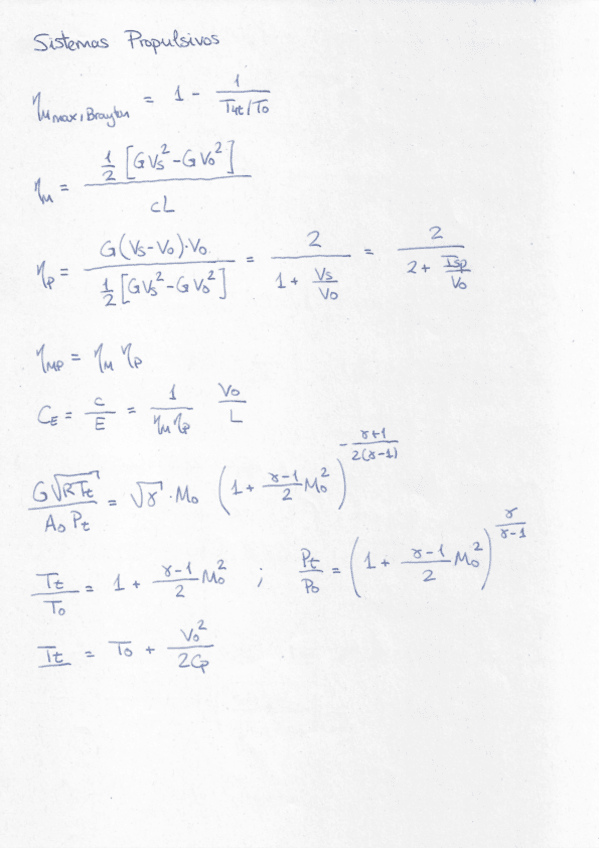 Sistemas Propulsivos
η_{M max, Brayton} = 1 - 1/(T4t/T0)
η_M = ½[GVs² - GV0²] / cL
η_P = G(Vs-V0)·V0 / ½[GVs² - GV0²] = 2/(1 + Vs/V0) = 2/(2 + Isp/V0)
η_MP = η_M η_P
C_E = c/E = 1/(η_M η_P) V0/L
G√(RTt)/(A0 Pt) = √γ · M0 (1 + (γ-1)/2 M0²)^{-(γ+1)/(2(γ-1))}
Tt/T0 = 1 + (γ-1)/2 M0² ; Pt/P0 = (1 + (γ-1)/2 M0²)^{γ/(γ-1)}
Tt = T0 + V0²/(2Cp)